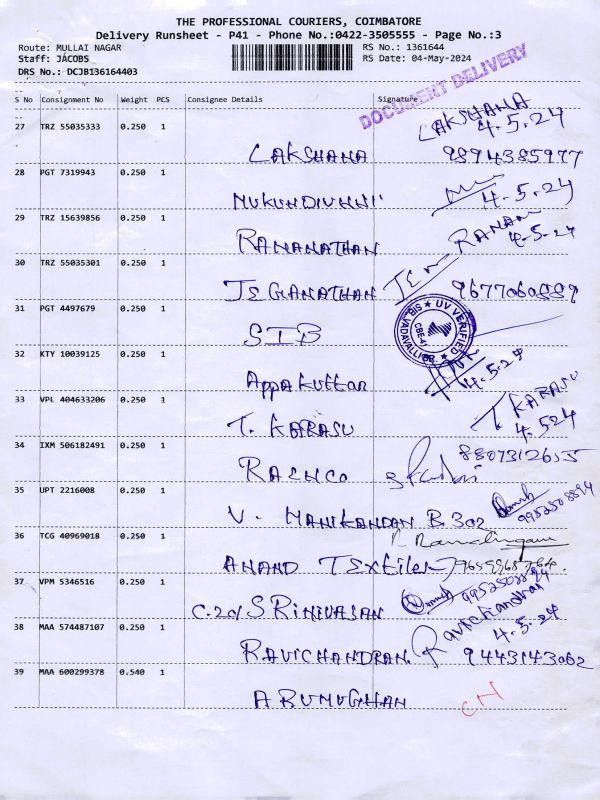 THE PROFESSIONAL COURIERS, COIMBATORE
Delivery Runsheet - P41 - Phone No.:0422-3505555 - Page No.:3
Route: MULLAI NAGAR
Staff: JACOBS
DRS No.: DCJB136164403
RS No.: 1361644
RS Date: 04-May-2024
DOCUMENT DELIVERY
S No Consignment No Weight PCS Consignee Details Signature
27 TRZ 55035333 0.250 1
LAKSHANA
LAKSHANA
4.5.24
9894385977
28 PGT 7319943 0.250 1
MUKUNDIUNNI
4-5-24
29 TRZ 15639856 0.250 1
RAMANATHAN
RAMAN
4-5-24
30 TRZ 55035301 0.250 1
JEGANATHAN
JEN
9677060889
31 PGT 4497679 0.250 1
SIB
UV VERIFIED
SIB, VADAVALLI BR.
CBE-41
32 KTY 10039125 0.250 1
Appakuttar
4.5.24
33 VPL 404633206 0.250 1
T. KARASU
T KARASU
4.524
34 IXM 506182491 0.250 1
RAENCO
35 UPT 2216008 0.250 1
V. MANIKANDAN B 302
9952508894
36 TCG 40969018 0.250 1
ANAND TEXtiles
R. Ramalingam
37 VPM 5346516 0.250 1
C-201 SRINIVASAN
9952508894
38 MAA 574487107 0.250 1
RAVICHANDRAN
Ravichandran
4-5-24
9443143062
39 MAA 600299378 0.540 1
ARUMUGHAN
CN